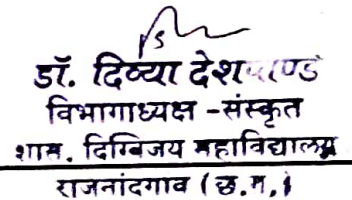 डॉ. दिव्या देशपाण्डे
विभागाध्यक्ष - संस्कृत
शास. दिग्विजय महाविद्यालय
राजनांदगाव (छ.ग.)